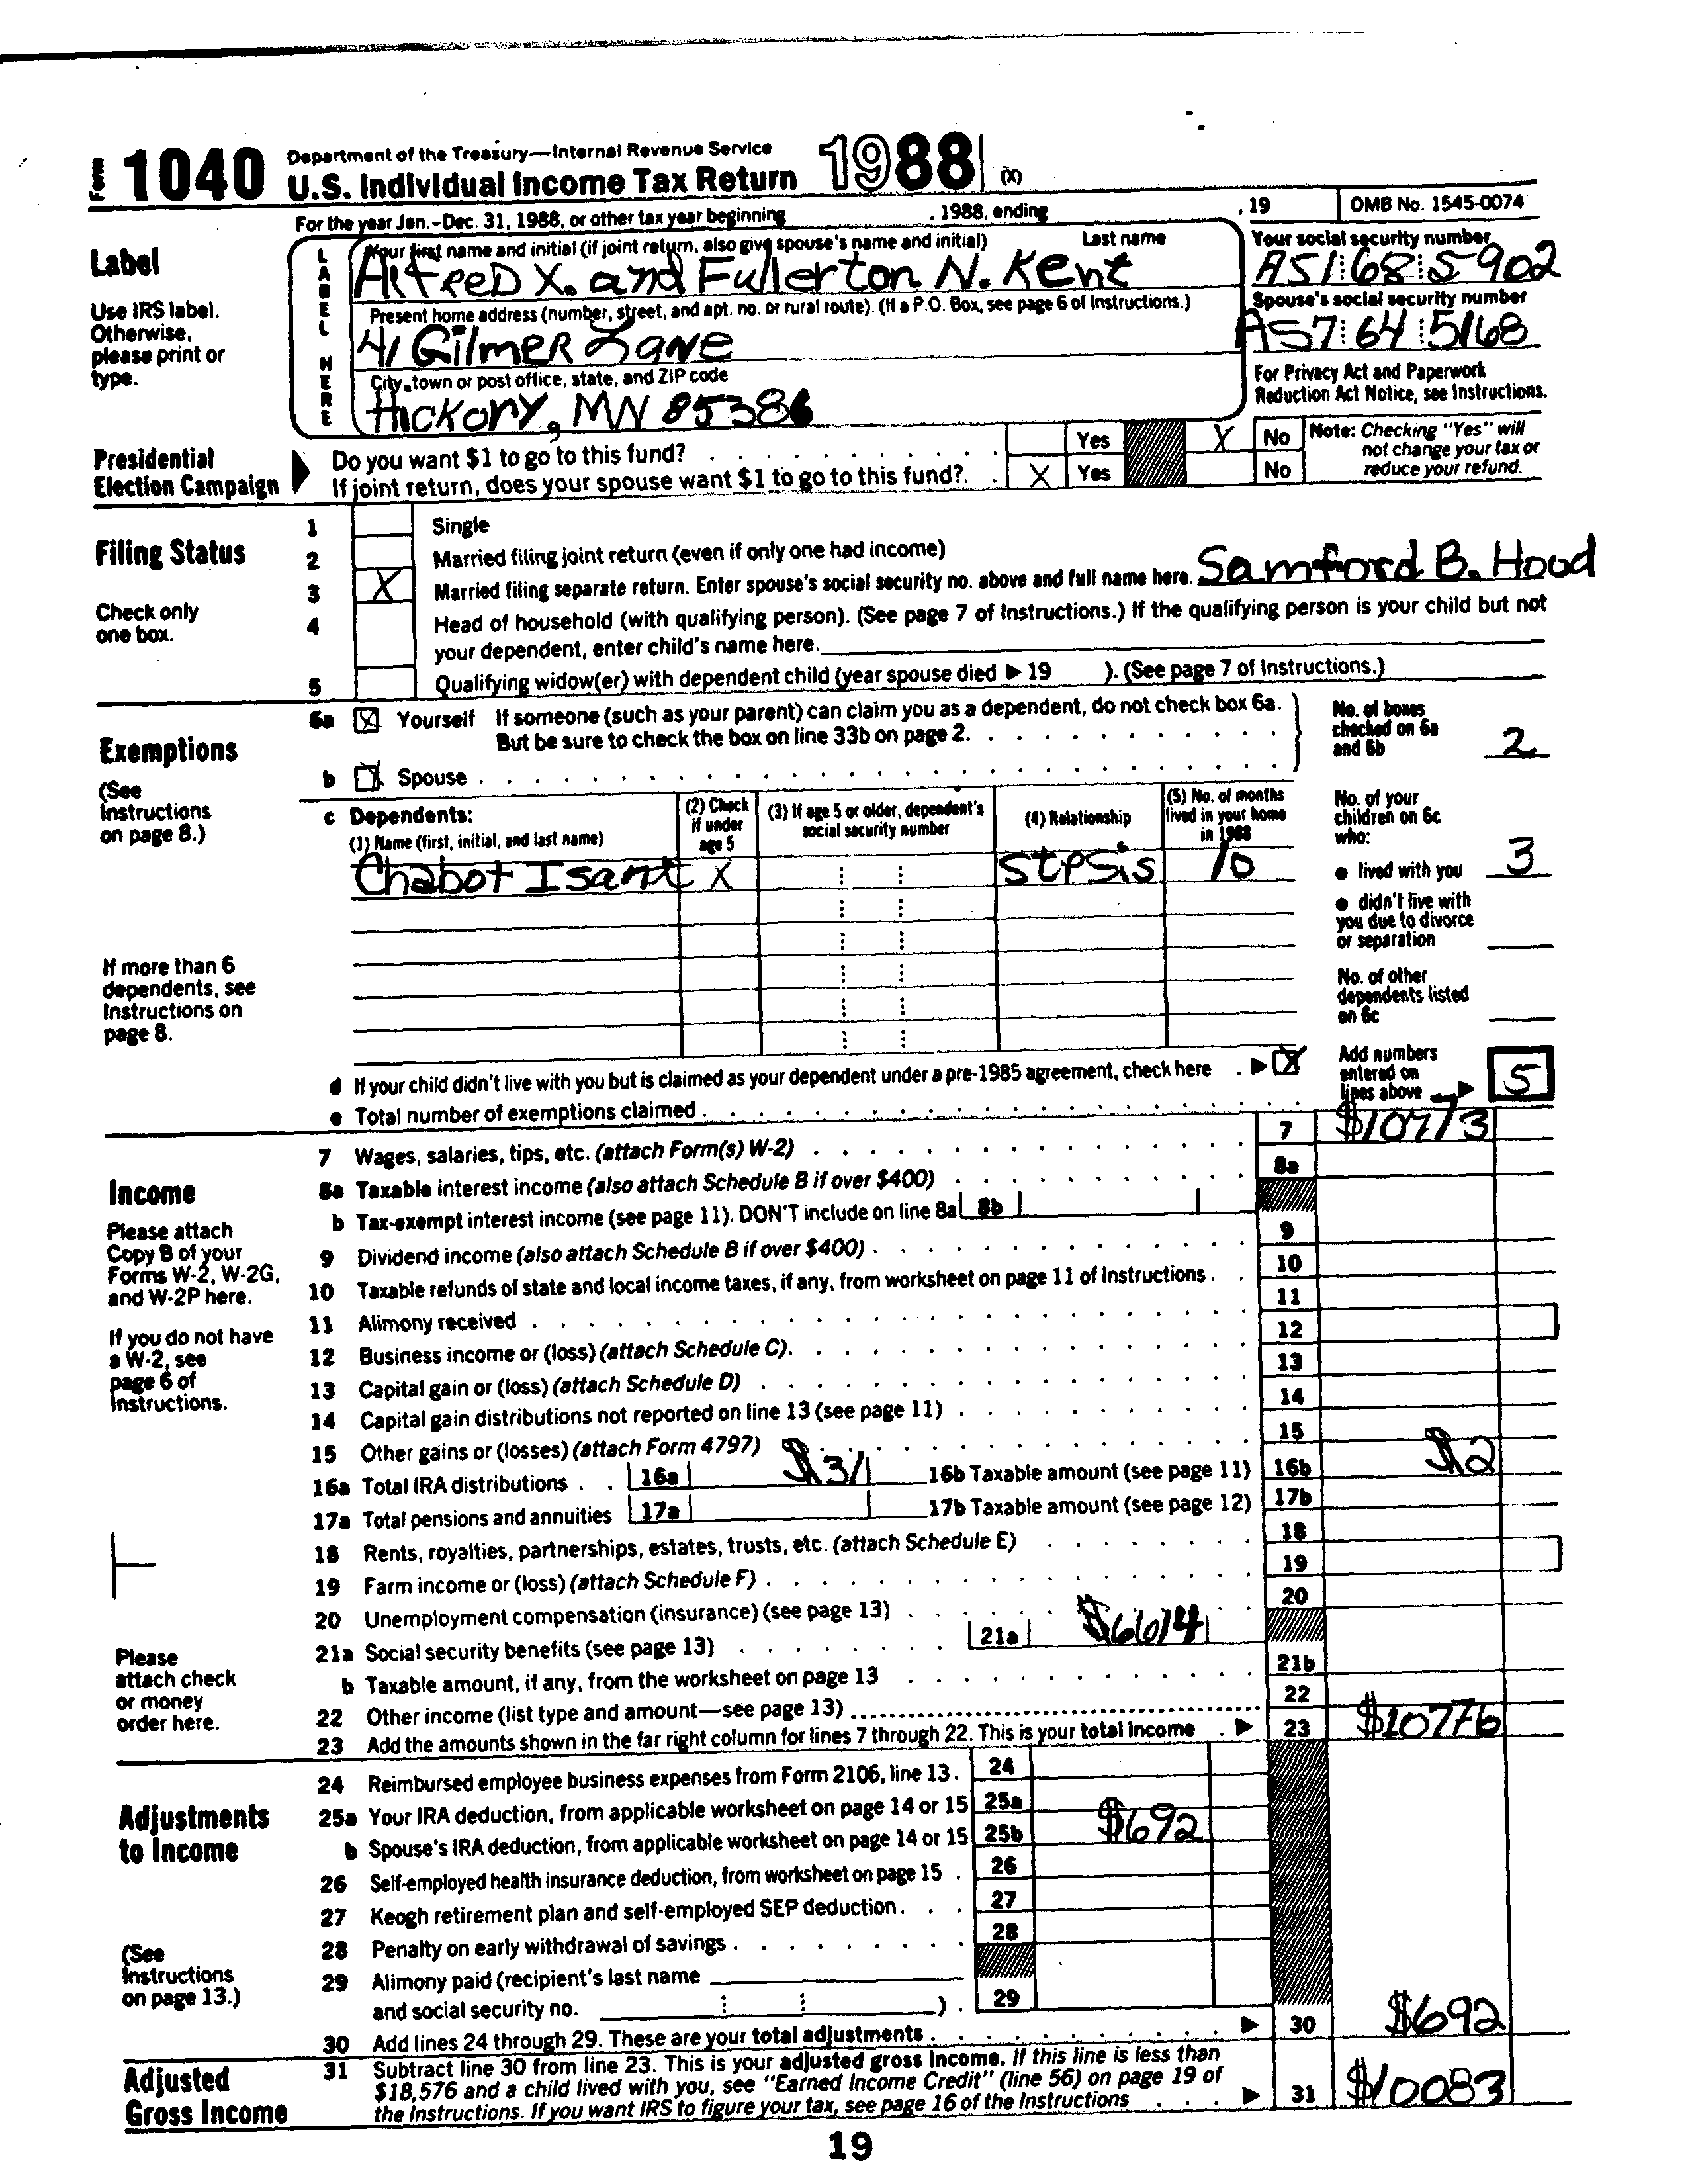 Form 1040 Department of the Treasury—Internal Revenue Service
U.S. Individual Income Tax Return 1988 (X)
For the year Jan.–Dec. 31, 1988, or other tax year beginning , 1988, ending , 19 OMB No. 1545-0074
Label
Use IRS label. Otherwise, please print or type.
LABEL HERE
Your first name and initial (if joint return, also give spouse's name and initial) Last name
AlfreeD X. and Fullerton N. Kent
Your social security number
AS1 68 5902
Present home address (number, street, and apt. no. or rural route). (If a P.O. Box, see page 6 of Instructions.)
41 Gilmer Lane
Spouse's social security number
AS7 64 5168
City, town or post office, state, and ZIP code
Hickory, MN 85386
For Privacy Act and Paperwork Reduction Act Notice, see Instructions.
Presidential Election Campaign
Do you want $1 to go to this fund? Yes X No
If joint return, does your spouse want $1 to go to this fund? X Yes No
Note: Checking "Yes" will not change your tax or reduce your refund.
Filing Status
Check only one box.
1 Single
2 Married filing joint return (even if only one had income)
3 X Married filing separate return. Enter spouse's social security no. above and full name here. Samford B. Hood
4 Head of household (with qualifying person). (See page 7 of Instructions.) If the qualifying person is your child but not
your dependent, enter child's name here.
5 Qualifying widow(er) with dependent child (year spouse died ▶ 19 ). (See page 7 of Instructions.)
Exemptions
(See Instructions on page 8.)
6a X Yourself If someone (such as your parent) can claim you as a dependent, do not check box 6a.
But be sure to check the box on line 33b on page 2.
b X Spouse
No. of boxes checked on 6a and 6b 2
c Dependents:
(1) Name (first, initial, and last name)
(2) Check if under age 5
(3) If age 5 or older, dependent's social security number
(4) Relationship
(5) No. of months lived in your home in 1988
Chabot Isant X StpSis 10
No. of your children on 6c who:
● lived with you 3
● didn't live with you due to divorce or separation
No. of other dependents listed on 6c
If more than 6 dependents, see Instructions on page 8.
d If your child didn't live with you but is claimed as your dependent under a pre-1985 agreement, check here ▶ X
e Total number of exemptions claimed
Add numbers entered on lines above ▶ 5
Income
Please attach Copy B of your Forms W-2, W-2G, and W-2P here.
If you do not have a W-2, see page 6 of Instructions.
Please attach check or money order here.
7 Wages, salaries, tips, etc. (attach Form(s) W-2) 7 $10773
8a Taxable interest income (also attach Schedule B if over $400) 8a
b Tax-exempt interest income (see page 11). DON'T include on line 8a 8b
9 Dividend income (also attach Schedule B if over $400) 9
10 Taxable refunds of state and local income taxes, if any, from worksheet on page 11 of Instructions 10
11 Alimony received 11
12 Business income or (loss) (attach Schedule C) 12
13 Capital gain or (loss) (attach Schedule D) 13
14 Capital gain distributions not reported on line 13 (see page 11) 14
15 Other gains or (losses) (attach Form 4797) 15
16a Total IRA distributions 16a $31 16b Taxable amount (see page 11) 16b $2
17a Total pensions and annuities 17a 17b Taxable amount (see page 12) 17b
18 Rents, royalties, partnerships, estates, trusts, etc. (attach Schedule E) 18
19 Farm income or (loss) (attach Schedule F) 19
20 Unemployment compensation (insurance) (see page 13) 20
21a Social security benefits (see page 13) 21a $6614
b Taxable amount, if any, from the worksheet on page 13 21b
22 Other income (list type and amount—see page 13) 22
23 Add the amounts shown in the far right column for lines 7 through 22. This is your total income ▶ 23 $10776
Adjustments to Income
(See Instructions on page 13.)
24 Reimbursed employee business expenses from Form 2106, line 13. 24
25a Your IRA deduction, from applicable worksheet on page 14 or 15 25a
b Spouse's IRA deduction, from applicable worksheet on page 14 or 15 25b $692
26 Self-employed health insurance deduction, from worksheet on page 15 26
27 Keogh retirement plan and self-employed SEP deduction 27
28 Penalty on early withdrawal of savings 28
29 Alimony paid (recipient's last name
and social security no. ) 29
30 Add lines 24 through 29. These are your total adjustments ▶ 30 $692
Adjusted Gross Income
31 Subtract line 30 from line 23. This is your adjusted gross income. If this line is less than
$18,576 and a child lived with you, see "Earned Income Credit" (line 56) on page 19 of
the Instructions. If you want IRS to figure your tax, see page 16 of the Instructions ▶ 31 $10083
19